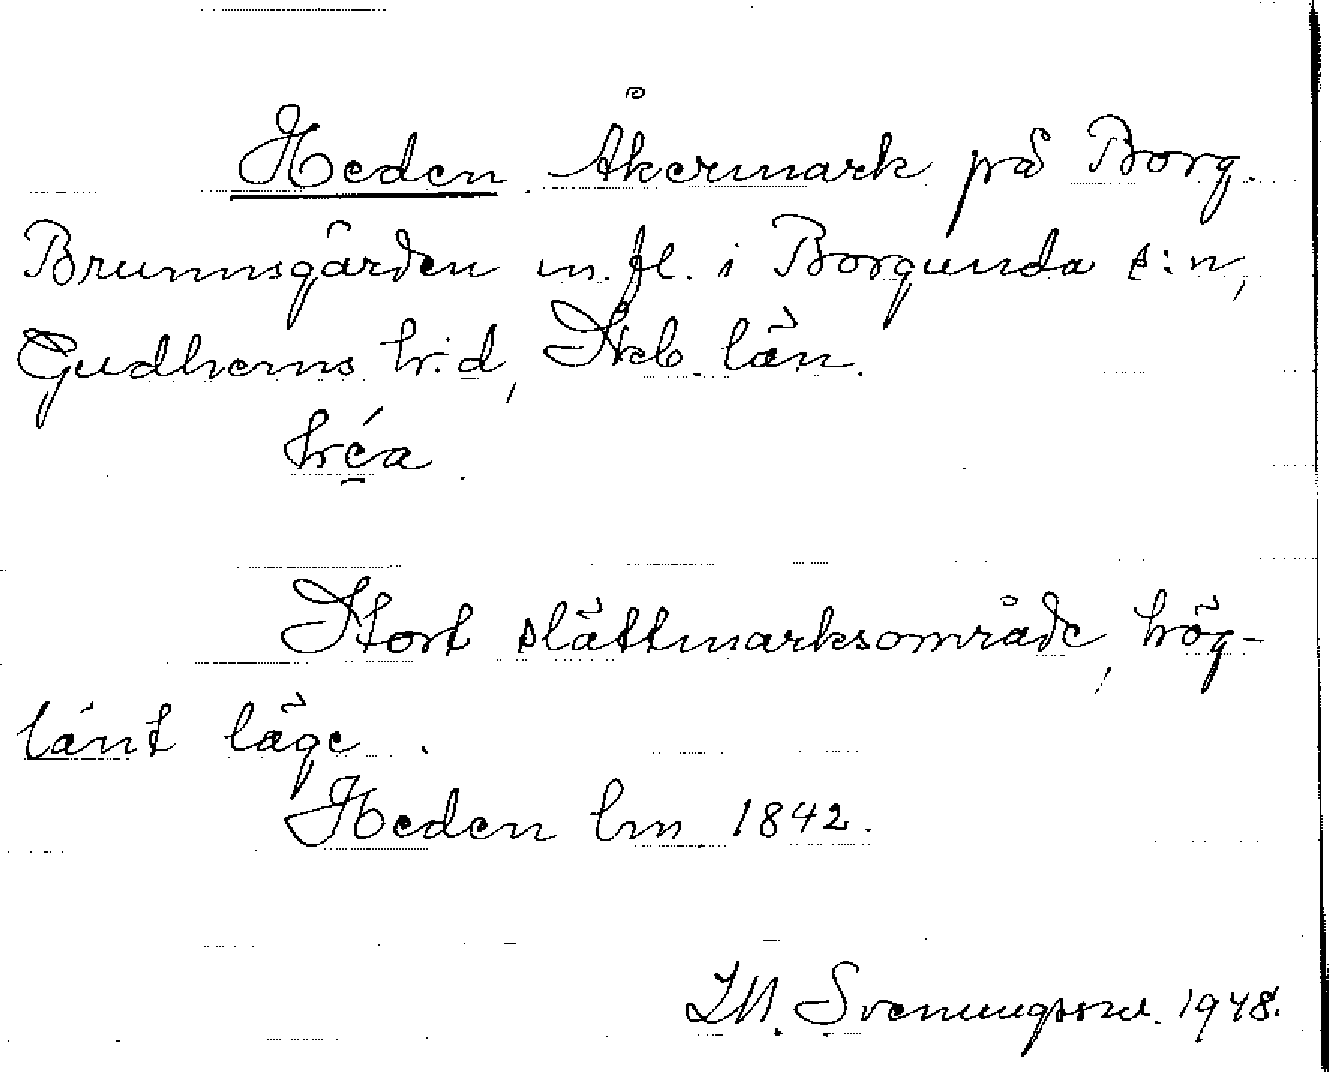 Heden. Åkermark på Borg.
Brunnsgården m.fl. i Borgunda s:n,
Gudhems h:d, Skb. län.
héa.
Stort slättmarksområde, hög-
länt läge.
Heden lm 1842.
I.M. Svenungsson. 1948.